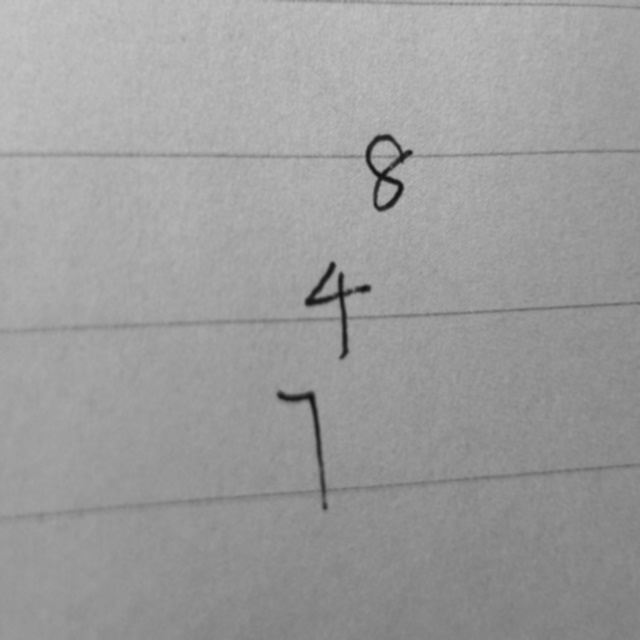 8
4
7